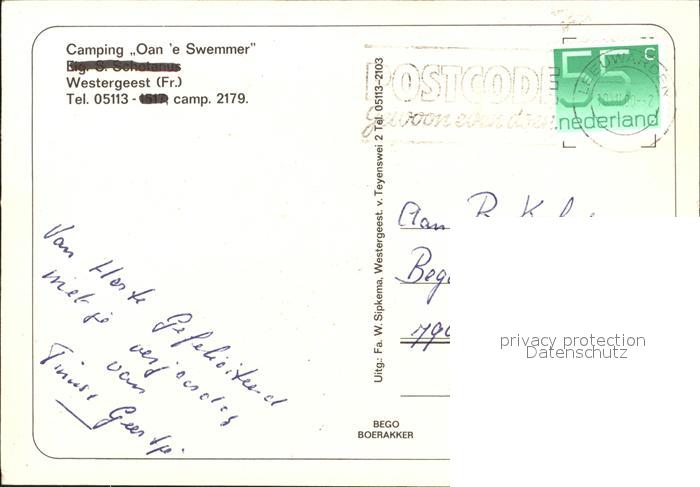 Camping „Oan 'e Swemmer"
Eig. S. Schotanus
Westergeest (Fr.)
Tel. 05113 - 1517, camp. 2179.
POSTCODE
gewoon even doen
LEEUWARDEN
55 c
nederland
Uitg.: Fa. W. Sipkema, Westergeest. v. Teyenswei 2 Tel. 05113-2103
Van Harte Gefeliciteerd
met je verjaardag
van
Geertje.
Aan R. K
Beg
790
privacy protection
Datenschutz
BEGO
BOERAKKER